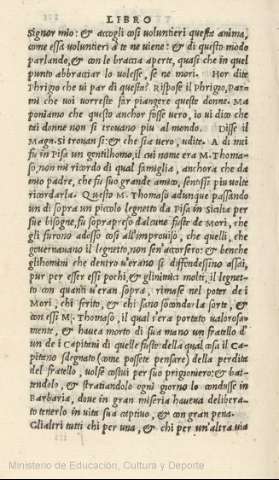 LIBRO
Signor mio: & accogli cosi voluntieri questa anima,
come essa voluntieri à te ne viene: & di questo modo
parlando, & con le braccia aperte, quasi che in quel
punto abbracciar lo volesse, se ne morì. Hor dite
Phrigio che vi par di questa? Rispose il Phrigio, Par=
mi che voi vorreste far piangere queste donne. Ma
poniamo che questo anchor fosse vero, io vi dico che
tai donne non si trovano piu al mondo. Disse il
Magn. Si trovan sì: & che sia vero, udite. A dì miei
fu in Pisa un gentilhomo, il cui nome era M. Thoma=
so, non mi ricordo di qual famiglia, anchora che da
mio padre, che fu suo grande amico, sentissi piu volte
ricordarla. Questo M. Thomaso adunque passando
un dì sopra un piccolo legnetto da Pisa in Sicilia per
sue bisogne, fu sopra preso d'alcune fuste de Mori, che
gli furono adosso cosi all'improviso, che quelli, che
governavano il legnetto, non sen'accorsero: & benche
glihomini che dentro v'erano si diffendessino assai,
pur per esser essi pochi, & glinimici molti, il legnet=
to con quanti v'eran sopra, rimase nel poter de i
Mori, chi ferito, & chi sano secondo la sorte, &
con essi M. Thomaso, il qual s'era portato valorosa=
mente, & havea morto di sua mano un fratello d'
un de i Capitani di quelle fuste. della qual cosa il Ca=
pitano sdegnato (come possete pensare) della perdita
del fratello, volse costui per suo prigioniero: & bat=
tendolo, & stratiandolo ogni giorno lo condusse in
Barbaria, dove in gran miseria haveva delibera=
to tenerlo in vita sua captivo, & con gran pena.
Glialtri tutti chi per una, & chi per un'altra via
Ministerio de Educación, Cultura y Deporte